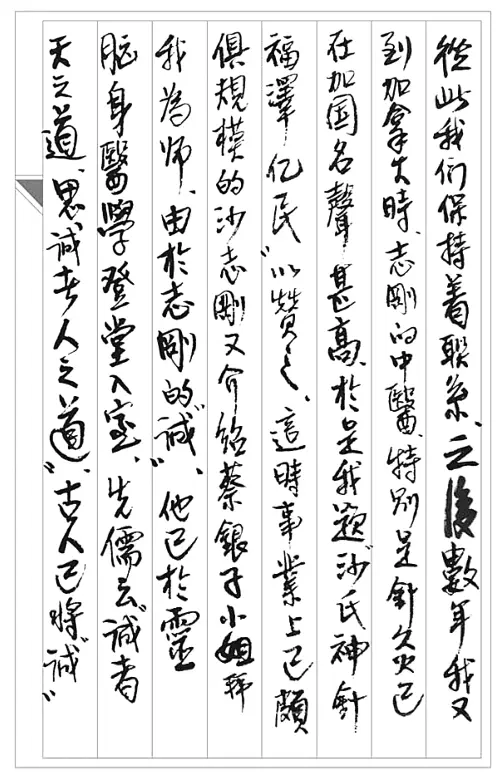 從此我们保持着聯系、之後數年我又
到加拿大時、志剛的中醫、特别是針灸已
在加国名聲甚高、於是我题“沙氏神針
福澤亿民”以赞之、這時事業上已頗
俱規模的沙志剛又介绍蔡銀子小姐拜
我為师、由於志剛的“诚”、他已於靈
脑身醫學登堂入室、先儒云“诚者
天之道、思诚者人之道”、古人已将“诚”